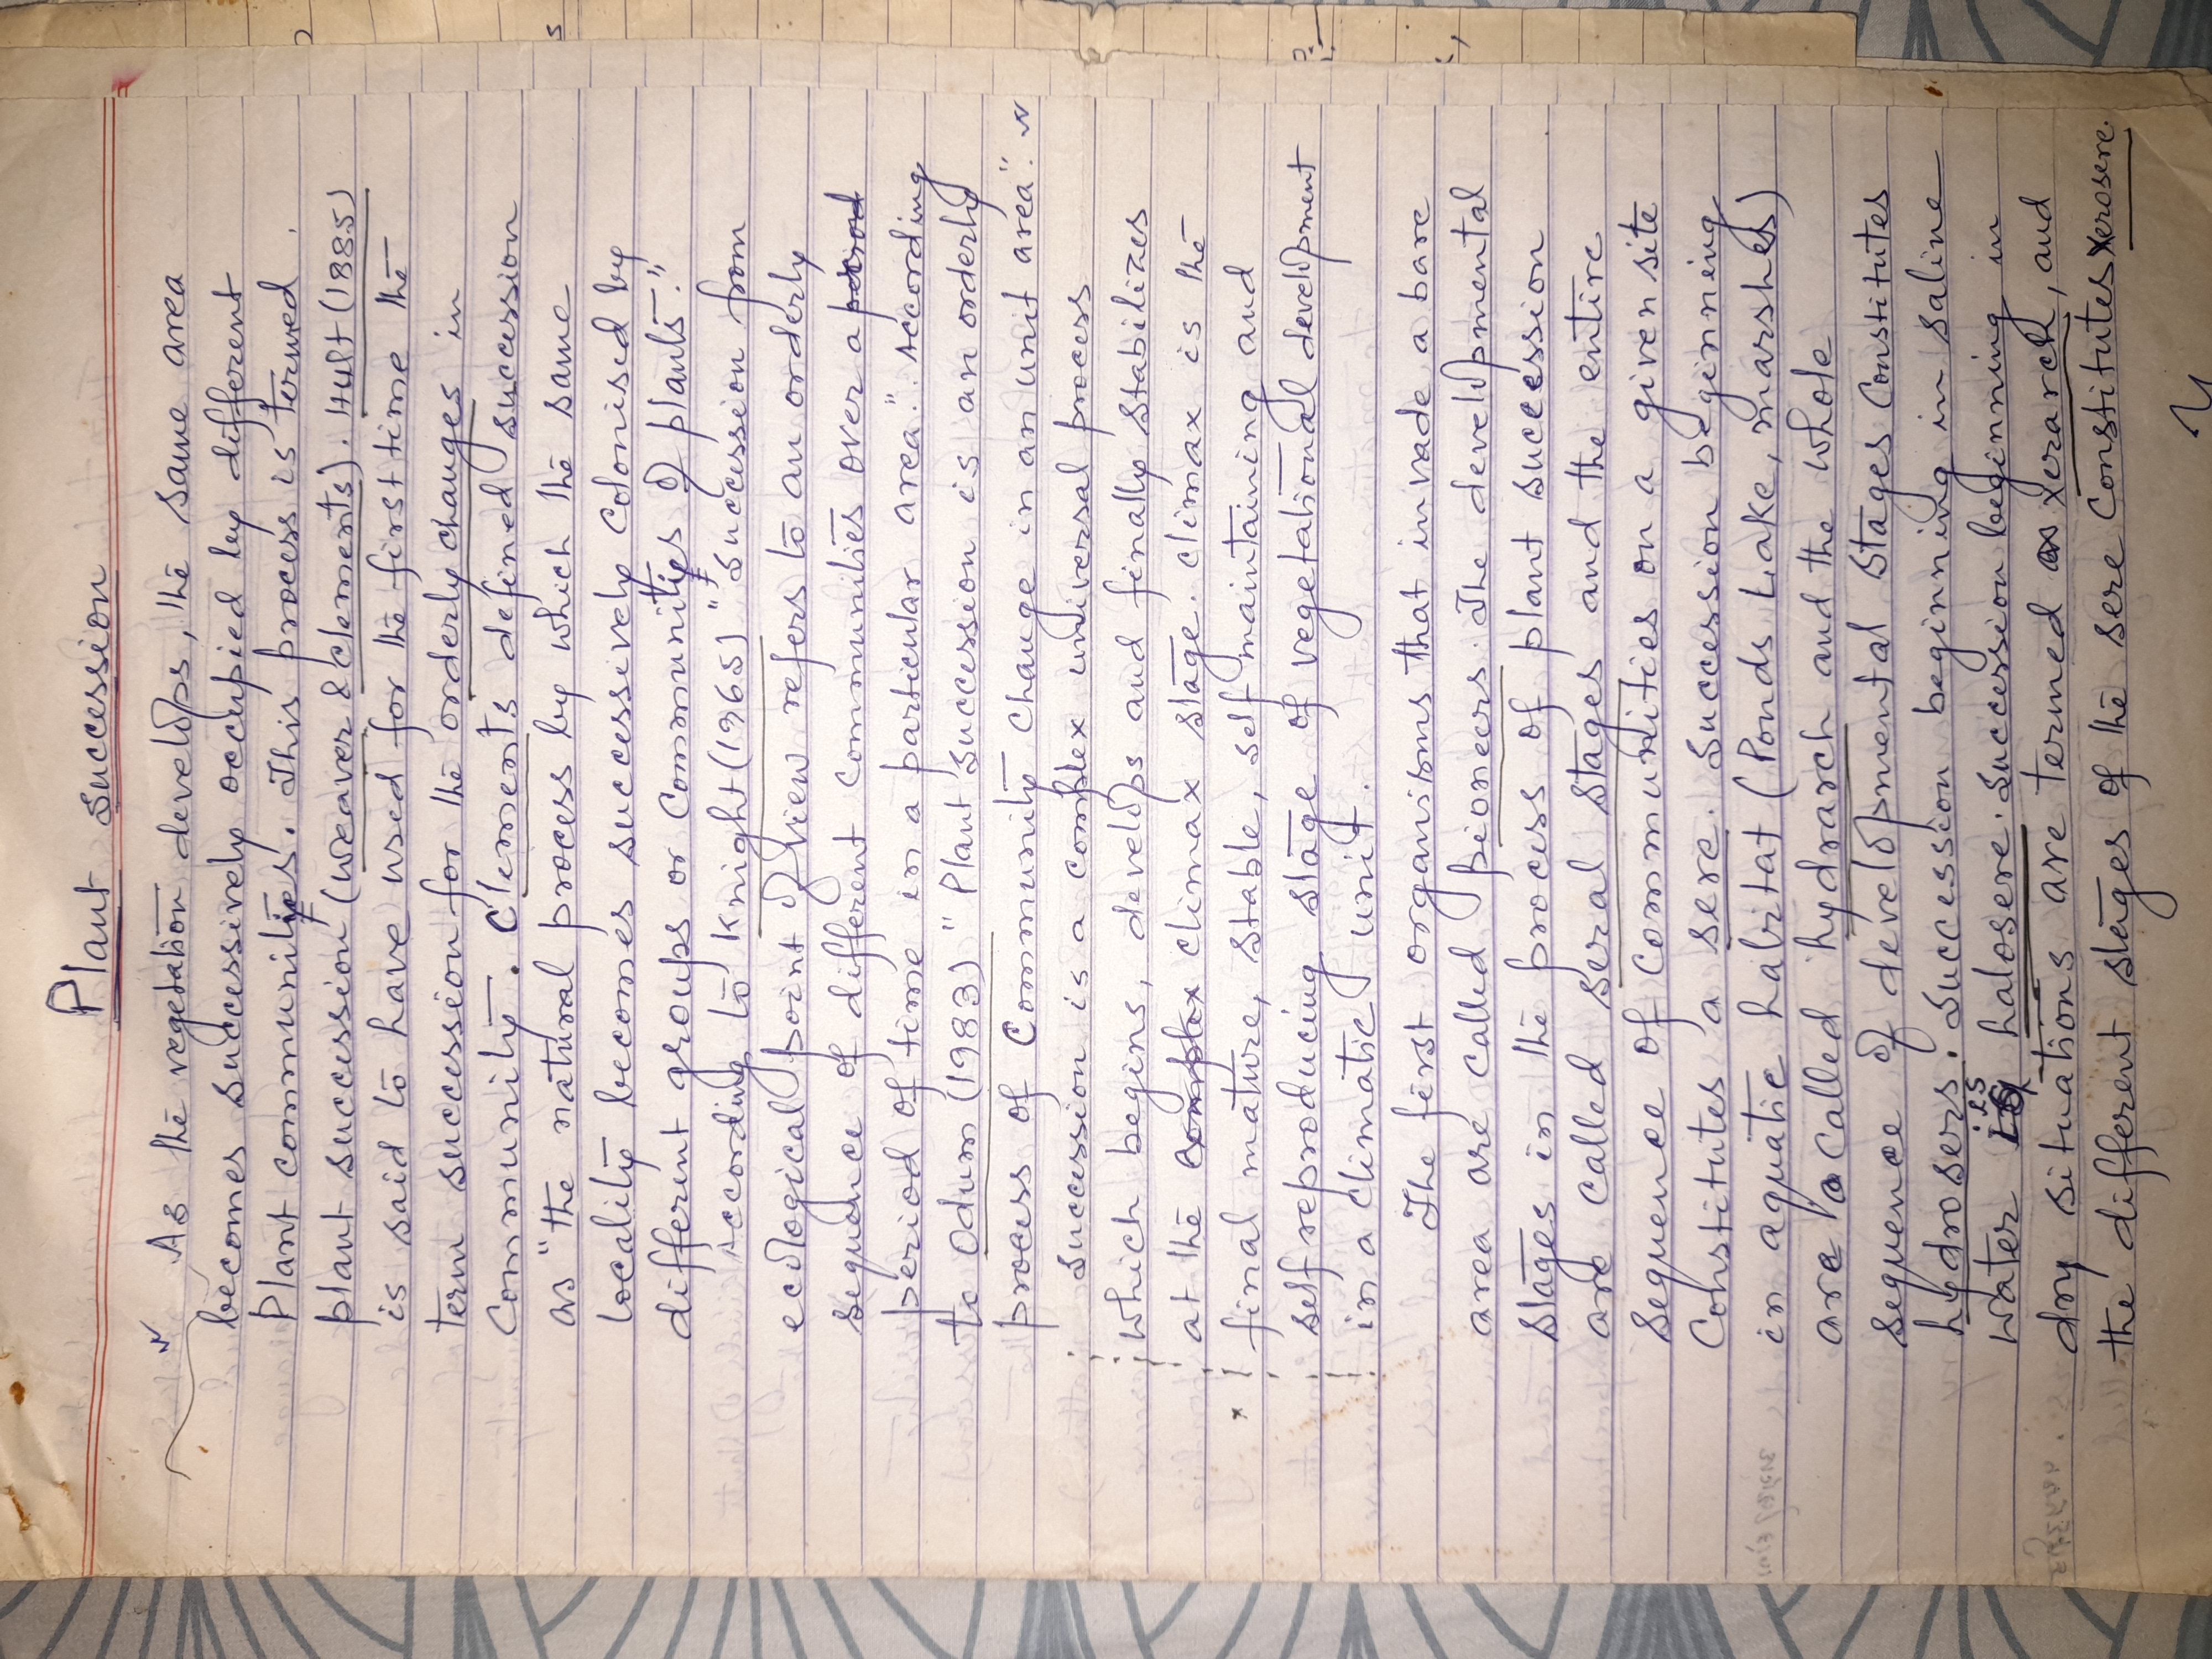 Plant Succession
As the vegetation develops, the same area
becomes successively occupied by different
plant communities. This process is termed
plant succession (weaver & clements). Hult (1885)
is said to have used for the first time the
term succession for the orderly changes in
Community. Clements defined succession
as "the natural process by which the same
locality becomes successively colonised by
different groups or communities of plants."
According to Knight (1965) "Succession from
ecological point of view refers to an orderly
sequence of different communities over a period
period of time in a particular area." According
to Odum (1983) "Plant succession is an orderly
process of community change in an unit area".
Succession is a complex universal process
which begins, develops and finally stabilizes
at the complex climax stage. climax is the
final mature, stable, self maintaining and
self reproducing stage of vegetational development
in a climatic unit.
The first organisms that invade a bare
area are called pioneers. The developmental
stages in the process of plant succession
are called seral stages and the entire
sequence of communities on a given site
constitutes a sere. Succession beginning
in aquatic habitat (Ponds Lake, marshes)
are called hydrarch and the whole
sequence of developmental stages constitutes
hydrosers. Succession beginning in saline
water is halosere. Succession beginning in
dry situations are termed as xerarch, and
the different stages of the sere constitutes xerosere.